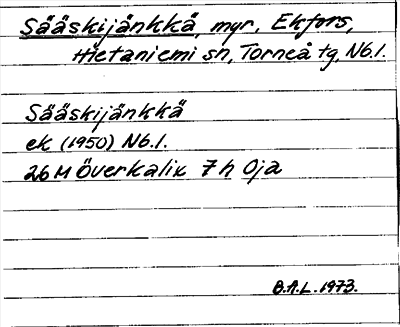 Sääskijänkkä, myr, Ekfors,
Hietaniemi sn, Torneå tg, Nb.l.
Sääskijänkkä
ek (1950) Nb.l.
26 M Överkalix 7 h Oja
B.A.L. 1973.